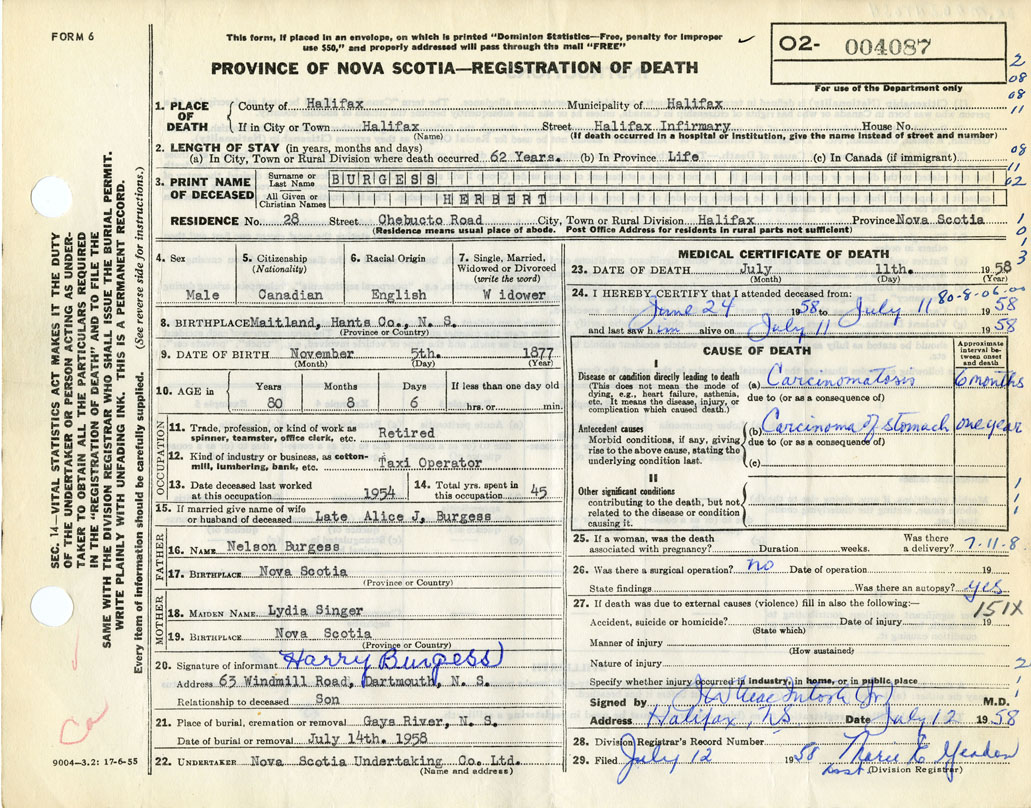 FORM 6
This form, if placed in an envelope, on which is printed "Dominion Statistics—Free, penalty for improper
use $50," and properly addressed will pass through the mail "FREE"
PROVINCE OF NOVA SCOTIA—REGISTRATION OF DEATH
O2- 004087
For use of the Department only
1. PLACE OF DEATH
County of Halifax Municipality of Halifax
If in City or Town Halifax Street Halifax Infirmary House No.
(Name) (If death occurred in a hospital or institution, give the name instead of street and number)
2. LENGTH OF STAY (in years, months and days)
(a) In City, Town or Rural Division where death occurred 62 Years. (b) In Province Life (c) In Canada (if immigrant)
3. PRINT NAME OF DECEASED
Surname or Last Name BURGESS
All Given or Christian Names HERBERT
RESIDENCE No. 28 Street Chebucto Road City, Town or Rural Division Halifax Province Nova Scotia
(Residence means usual place of abode. Post Office Address for residents in rural parts not sufficient)
4. Sex
Male
5. Citizenship (Nationality)
Canadian
6. Racial Origin
English
7. Single, Married, Widowed or Divorced (write the word)
Widower
8. BIRTHPLACE Maitland, Hants Co., N. S.
(Province or Country)
9. DATE OF BIRTH November 5th. 1877
(Month) (Day) (Year)
10. AGE in
Years Months Days If less than one day old
80 8 6 hrs. or min.
OCCUPATION
11. Trade, profession, or kind of work as spinner, teamster, office clerk, etc. Retired
12. Kind of industry or business, as cotton-mill, lumbering, bank, etc. Taxi Operator
13. Date deceased last worked at this occupation 1954
14. Total yrs. spent in this occupation 45
15. If married give name of wife or husband of deceased Late Alice J, Burgess
FATHER
16. NAME Nelson Burgess
17. BIRTHPLACE Nova Scotia
(Province or Country)
MOTHER
18. MAIDEN NAME Lydia Singer
19. BIRTHPLACE Nova Scotia
(Province or Country)
20. Signature of informant Harry Burgess
Address 63 Windmill Road, Dartmouth, N. S.
Relationship to deceased Son
21. Place of burial, cremation or removal Gays River, N. S.
Date of burial or removal July 14th. 1958
22. UNDERTAKER Nova Scotia Undertaking Co. Ltd.
(Name and address)
MEDICAL CERTIFICATE OF DEATH
23. DATE OF DEATH July 11th. 1958
(Month) (Day) (Year)
24. I HEREBY CERTIFY that I attended deceased from: 80-8-06-00
June 24 1958 to July 11 1958
and last saw him alive on July 11 1958
CAUSE OF DEATH
Approximate interval between onset and death
I
Disease or condition directly leading to death
(This does not mean the mode of dying, e.g., heart failure, asthenia, etc. It means the disease, injury, or complication which caused death.)
(a) Carcinomatosis 6 months
due to (or as a consequence of)
Antecedent causes
Morbid conditions, if any, giving rise to the above cause, stating the underlying condition last.
(b) Carcinoma of stomach one year
due to (or as a consequence of)
(c)
II
Other significant conditions
contributing to the death, but not related to the disease or condition causing it.
25. If a woman, was the death associated with pregnancy? Duration weeks. Was there a delivery? 7-11-8
26. Was there a surgical operation? no Date of operation 19
State findings Was there an autopsy? yes
27. If death was due to external causes (violence) fill in also the following:— 151X
Accident, suicide or homicide? Date of injury 19
(State which)
Manner of injury
(How sustained)
Nature of injury
Specify whether injury occurred in industry, in home, or in public place
Signed by M.D.
Address Halifax, NS Date July 12 1958
28. Division Registrar's Record Number
29. Filed July 12 1958
(Division Registrar)
SEC. 14—VITAL STATISTICS ACT MAKES IT THE DUTY
OF THE UNDERTAKER OR PERSON ACTING AS UNDER-
TAKER TO OBTAIN ALL THE PARTICULARS REQUIRED
IN THE "REGISTRATION OF DEATH" AND TO FILE THE
SAME WITH THE DIVISION REGISTRAR WHO SHALL ISSUE THE BURIAL PERMIT.
WRITE PLAINLY WITH UNFADING INK. THIS IS A PERMANENT RECORD.
Every item of information should be carefully supplied. (See reverse side for instructions.)
Ca
9004—3.2: 17-6-55
2
08
08
11
08
11
02
1
0
3
1
1
1
2
1
1